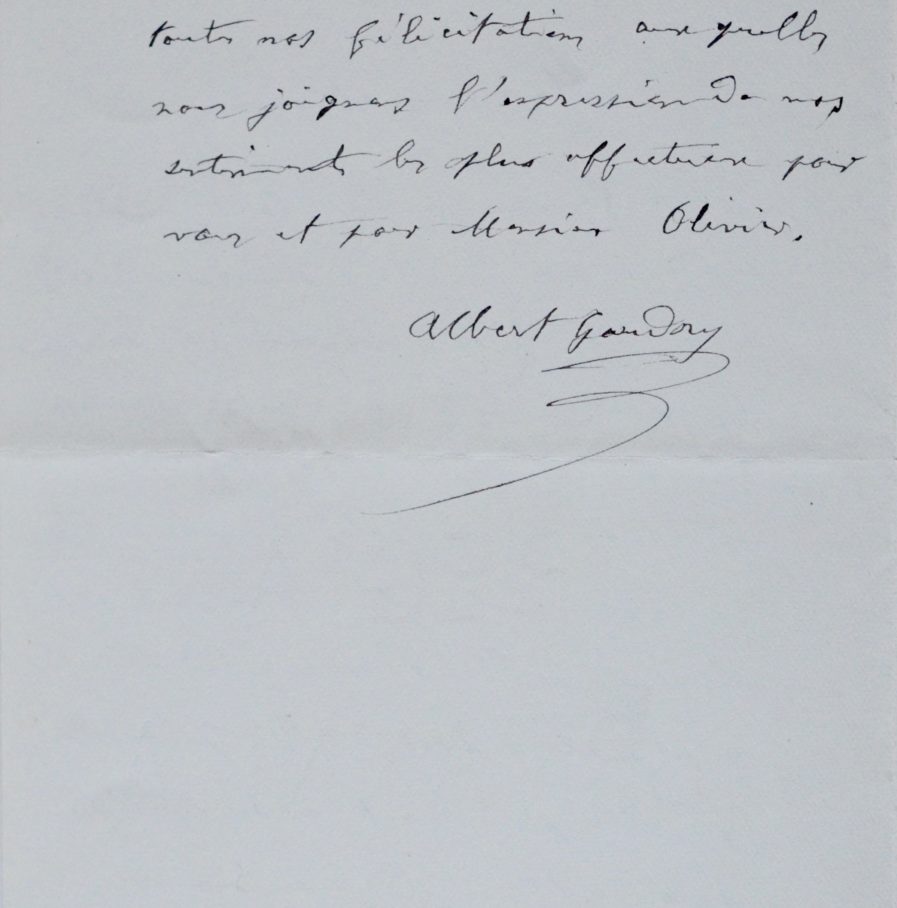 toutes nos félicitations auxquelles
nous joignons l'expression de nos
sentiments les plus affectueux pour
vous et pour Monsieur Olivier.
Albert Gaudry